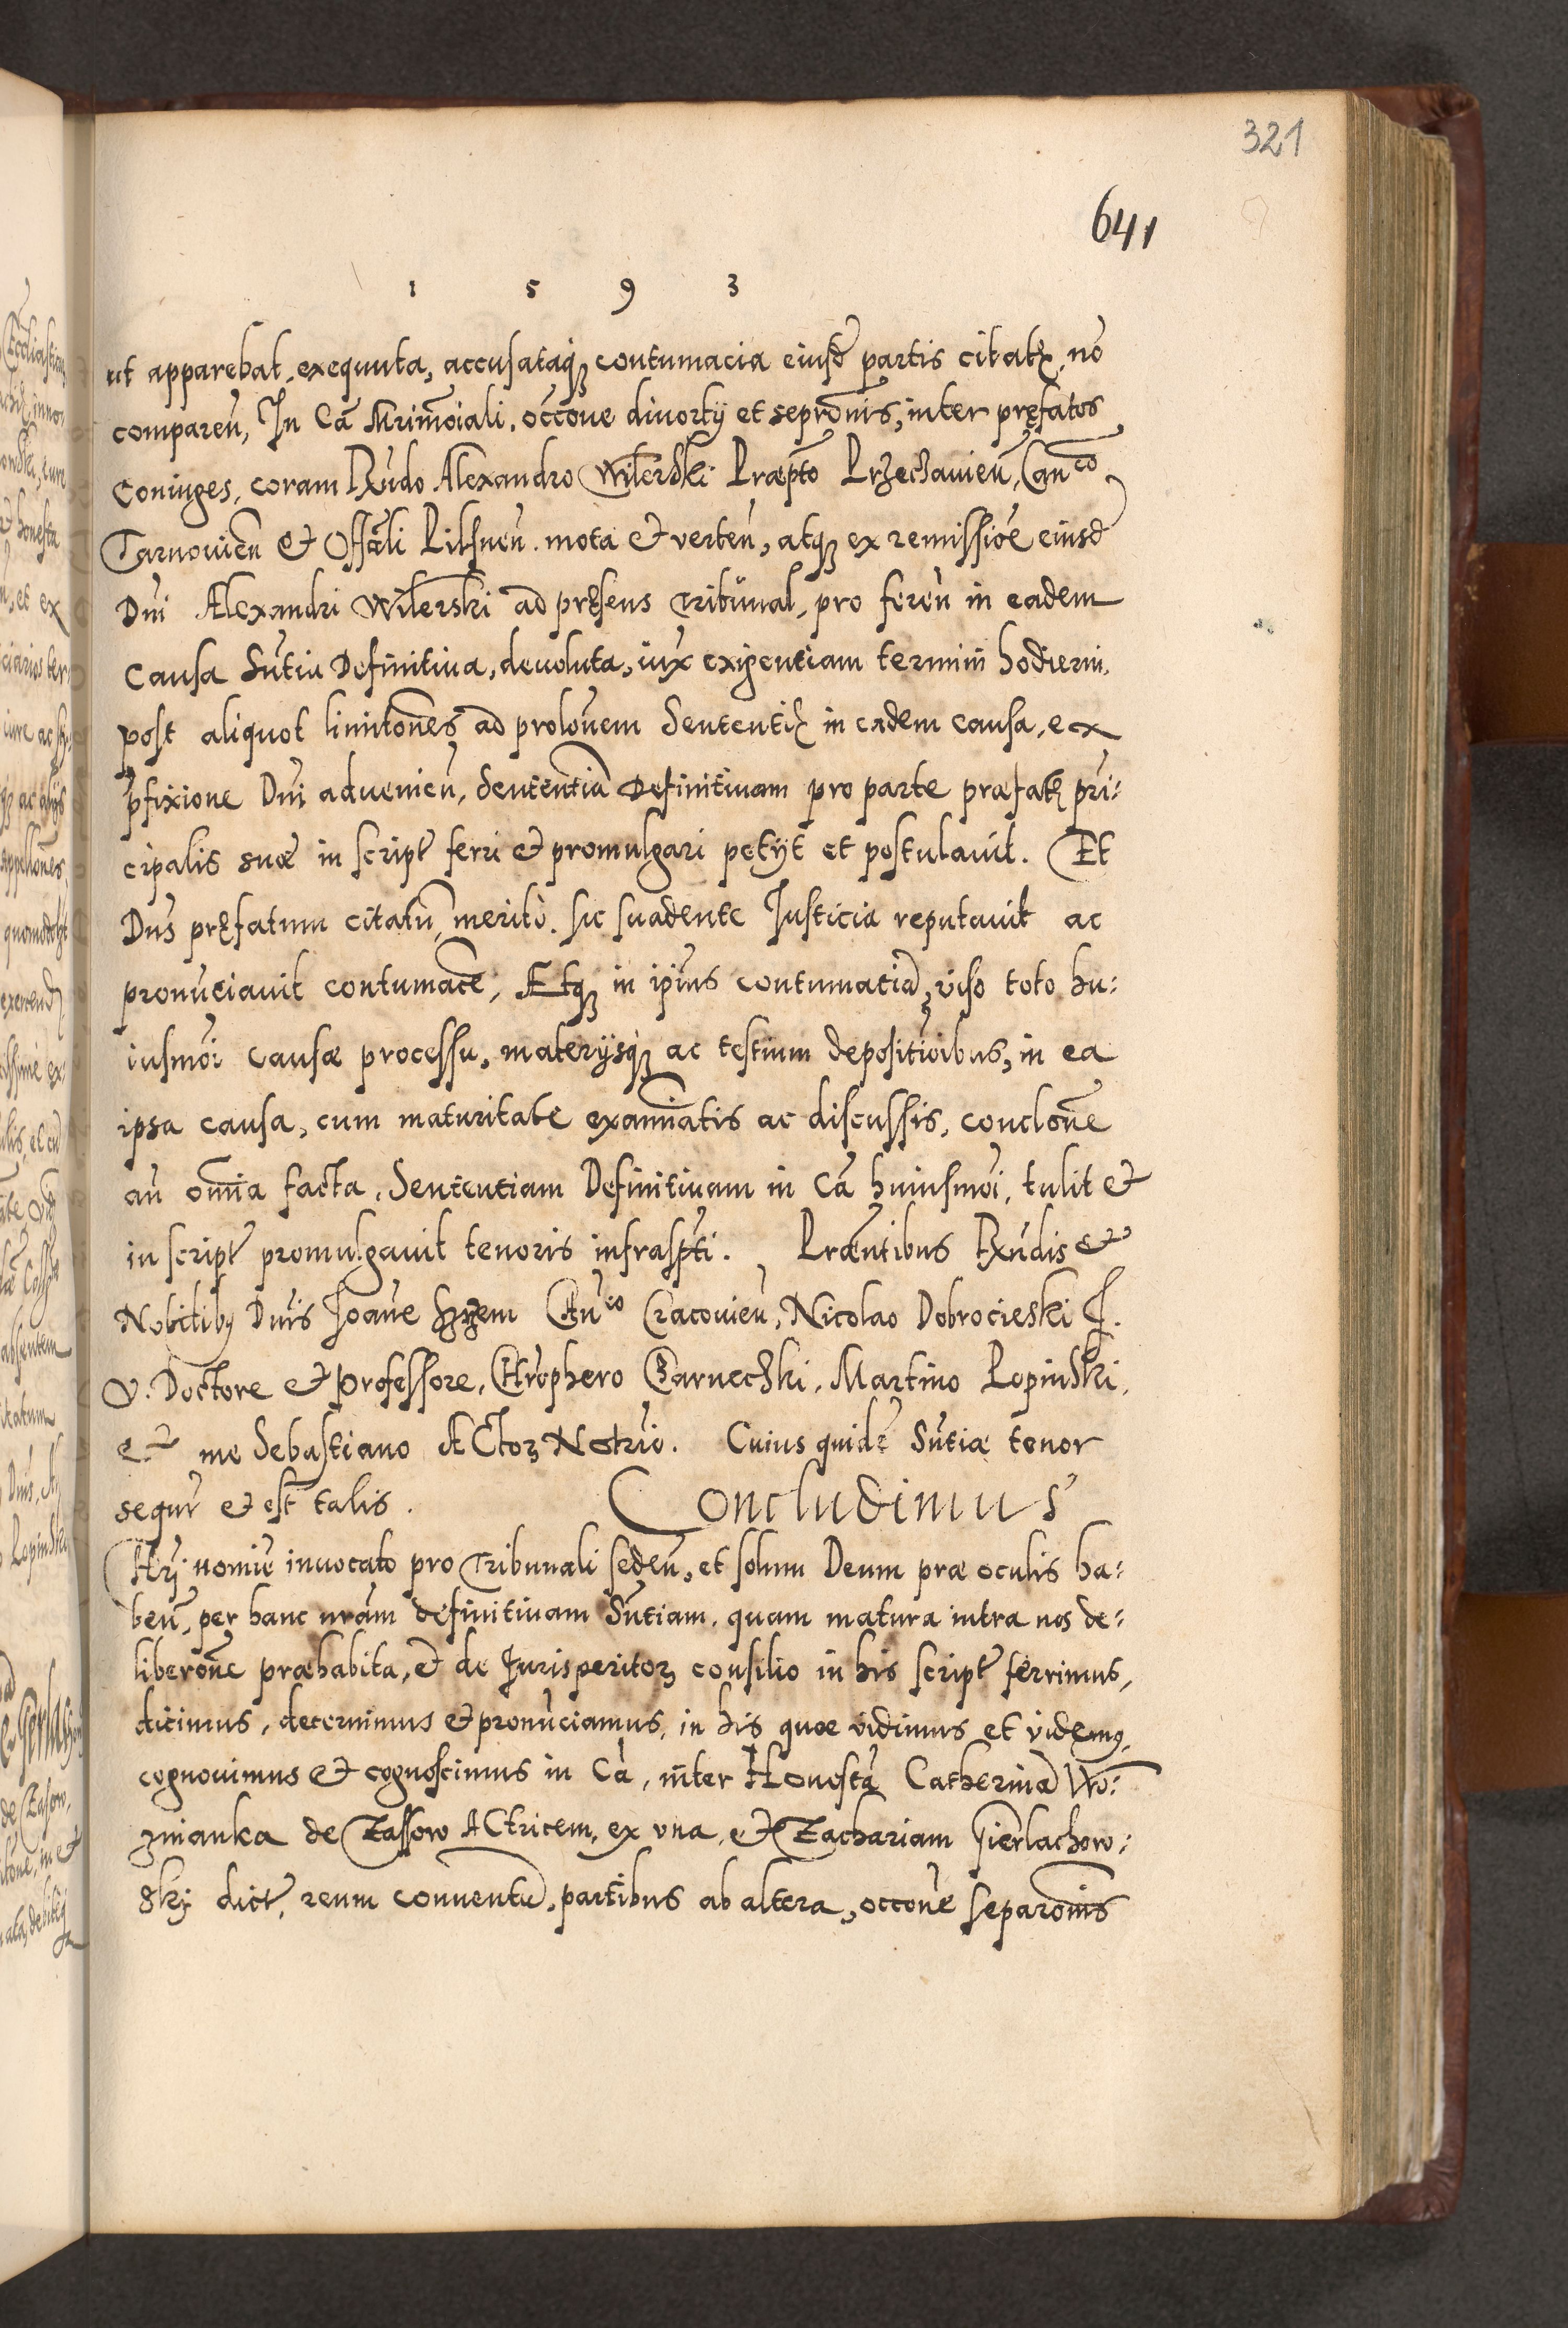 321
641
1 5 9 3
ut apparebat, exequuta, accusataq₃ contumacia eiusd̄ partis citatę, nō
comparen̄, In Cā Mrimōiali, occōne diuortij et sepronīs, inter pręfatos
Coniuges, coram Rn̄do Alexandro Wilerski Præpto Przeclauien̄, Canco
Tarnouien̄ & Offāli Pilsnen̄. mota & verten̄, atq₃ ex remissiōe eiusd̄
Dn̄i Alexandri Wilerski ad pręsens tribunal, pro feren̄ in eadem
causa Sn̄tia Definitiua, deuoluta, iux̄ exigentiam termini hodierni,
post aliquot limitōnes, ad prolōnem Sententię in eadem causa, ex
p̄fixione Dn̄i aduenien̄, Sententiā Definitiuam pro parte præfatę pri:
cipalis suæ in script̄ ferri & promulgari petijt et postulauit. Et
Dn̄s pręfatum citatū, merito. sic suadente Justicia reputauit ac
pronūciauit contumacē, Atq₃ in ip̄ius contumatiā, viso toto hu:
iusmōi causæ processu, materijsq₃ ac testium depositiōibus, in ea
ipsa causa, cum maturitate examinātis ac discussis, conclōne
an̄ omnīa facta, Sententiam Definitiuam in Cā huiusmōi, tulit &
in script̄ promulgauit tenoris infrasp̄ti. Præn̄tibus Rn̄dis &
Nobilibus Dn̄is Joāne Canco Cracouien̄, Nicolao Dobrocieski J.
V. Doctore & professore, Chrophero Czarnecski, Martino Lopinski,
et me Sebastiano Actor₃ Notrio. Cuius quidē Sn̄tiæ tenor
sequr̄ & est talis. Concludimus
Chri nomīe inuocato pro tribunali seden̄, et solum Deum præ oculis ha:
ben̄, per hanc nr̄am definitiuam Sn̄tiam, quam matura intra nos de:
liberōne præhabita, & de Jurisperitor₃ consilio in his script̄ ferrimus,
dicimus, decernimus & pronūciamus, in his quæ vidimus et videm9,
cognouimus & cognoscimus in Cā, inter Honestā Catherinā Wo:
znianka de Zassow Actricem, ex vna, & Zachariam Gierlachow:
skj dict̄, reum conuentū, partibus ab altera, occōne separōnis